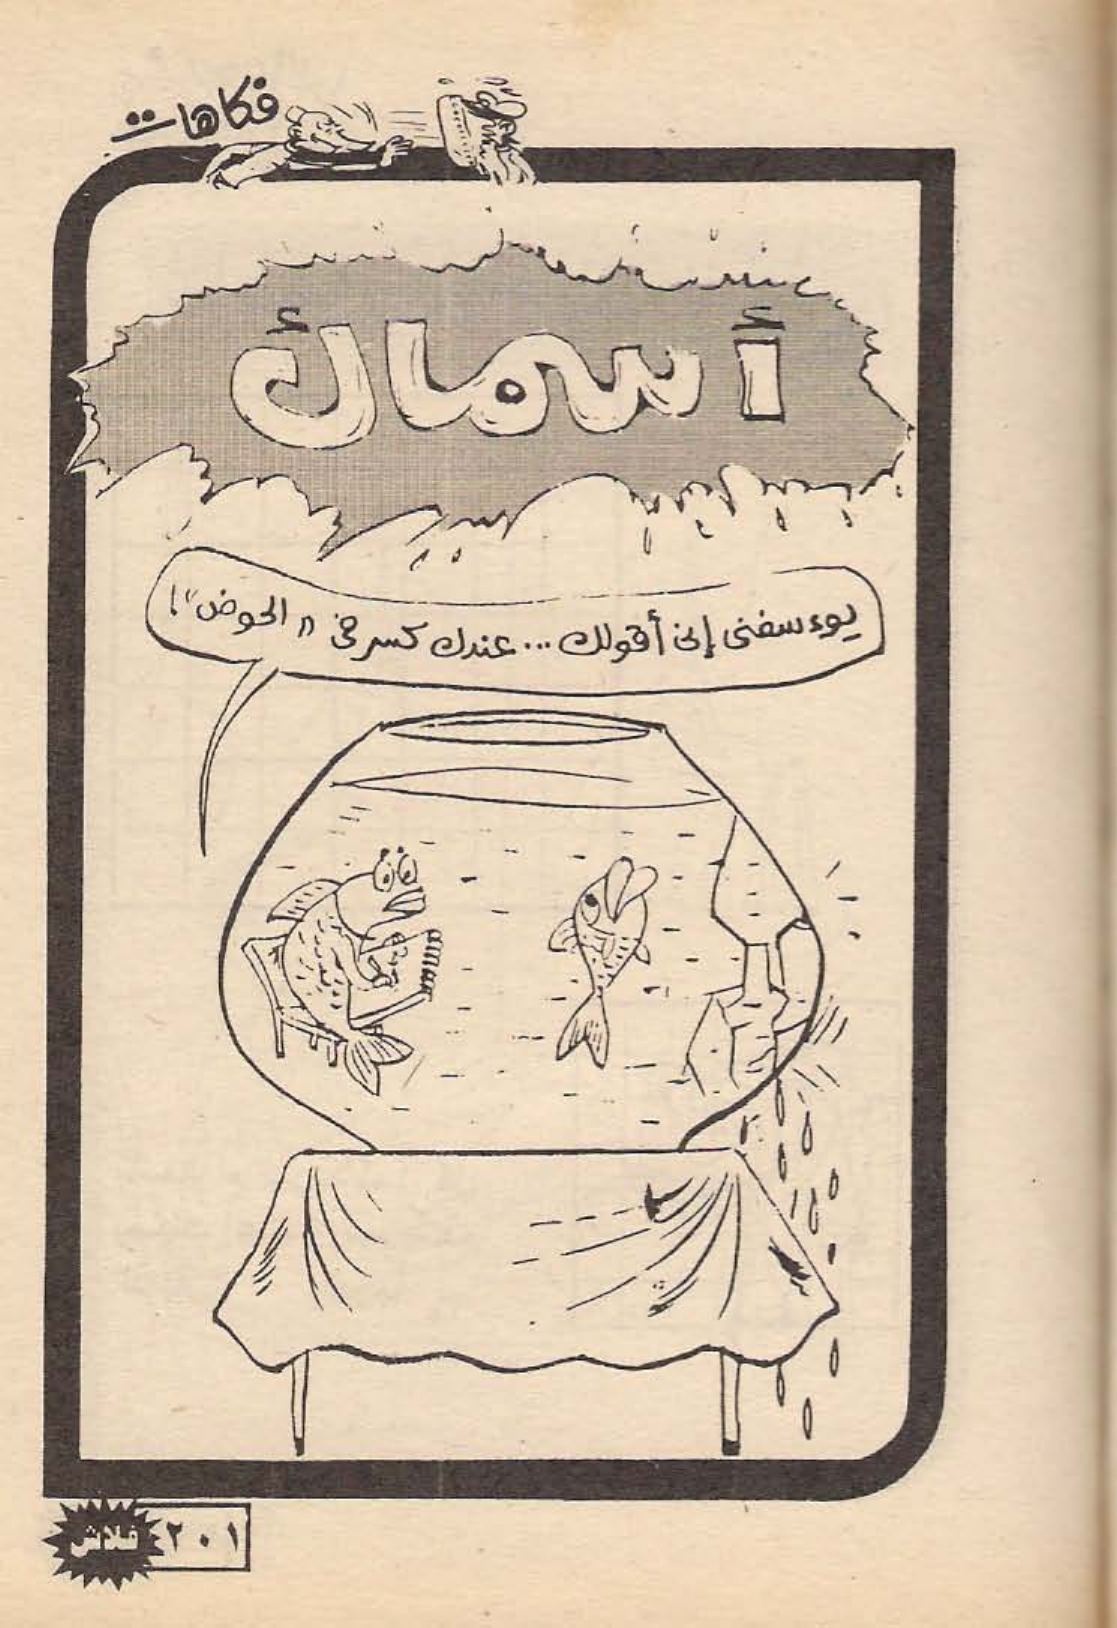 فكاهات
أسماك
يوءسفنى إنى أقولك ... عندك كسر فى "الحوض"!
فلاش ٢٠١